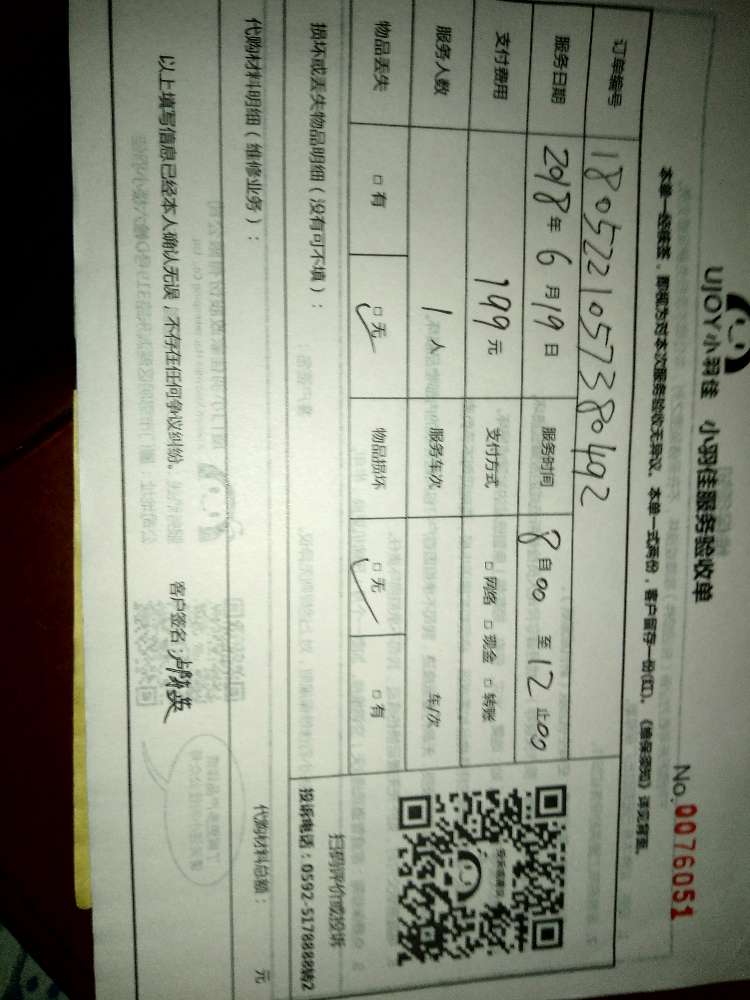 UJOY小羽佳 小羽佳服务验收单
No.0076051
本单一经接签，即视为对本次服务验收无异议。本单一式两份，客户留存一份(红)。《维保须知》详见背面。
订单编号 1805221057380492
服务日期 2018年6月19日 服务时间 8自00至12止00
支付费用 199元 支付方式 □网络 □现金 □转账
服务人数 1人 服务车次 车/次
物品丢失 □有 □无 物品损坏 □无 □有
扫码评价或投诉
损坏或丢失物品明细（没有可不填）：
投诉电话：0592-5178888转2
代购材料明细（维修业务）： 代购材料总额： 元
以上填写信息已经本人确认无误，不存在任何争议纠纷。 客户签名：